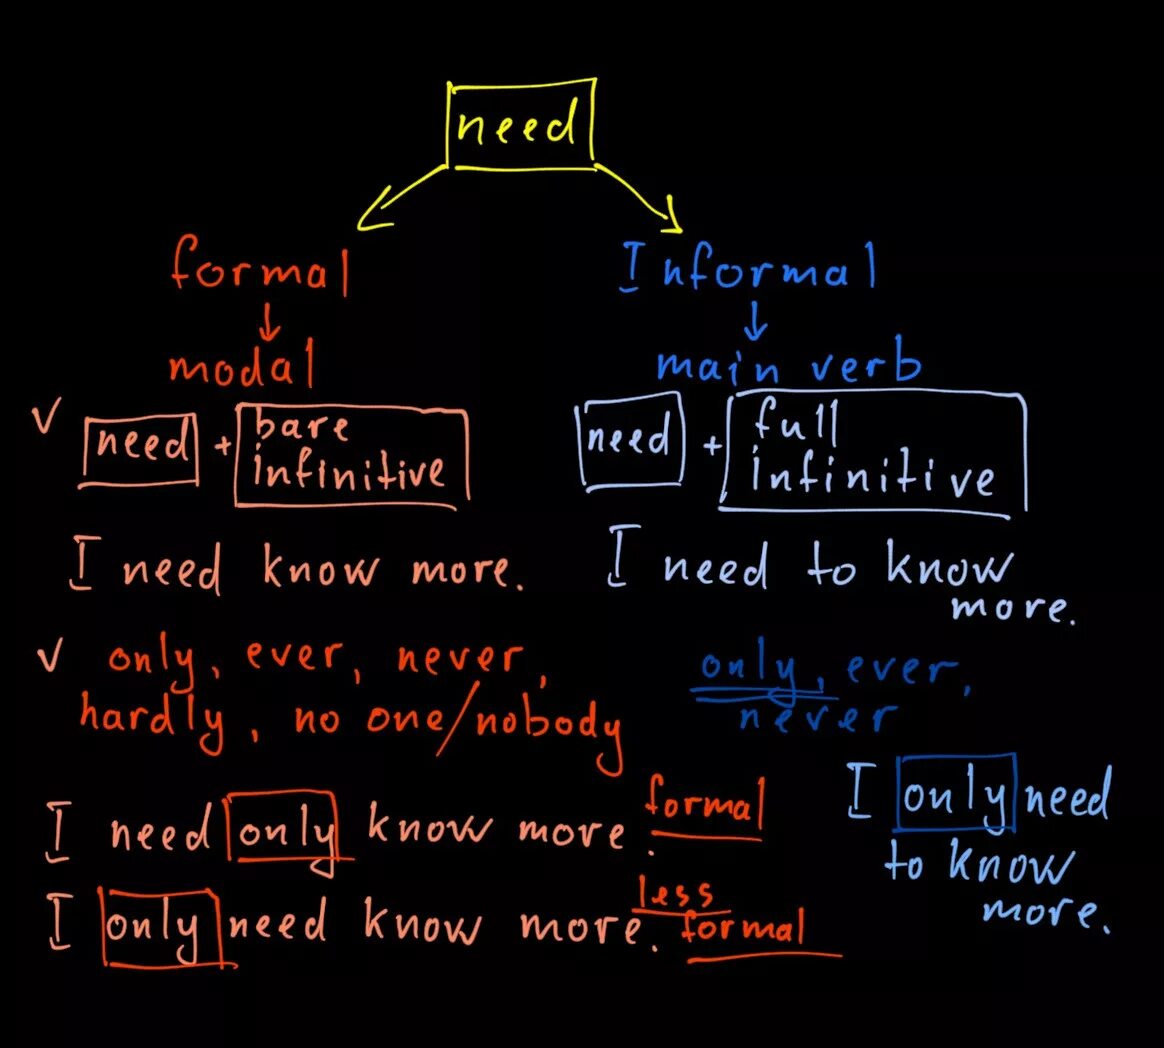 need
formal
modal
✓ need + bare
infinitive
I need know more.
✓ only, ever, never,
hardly, no one/nobody
I need only know more. formal
I only need know more. less
formal
Informal
main verb
need + full
infinitive
I need to know
more.
only, ever,
never
I only need
to know
more.